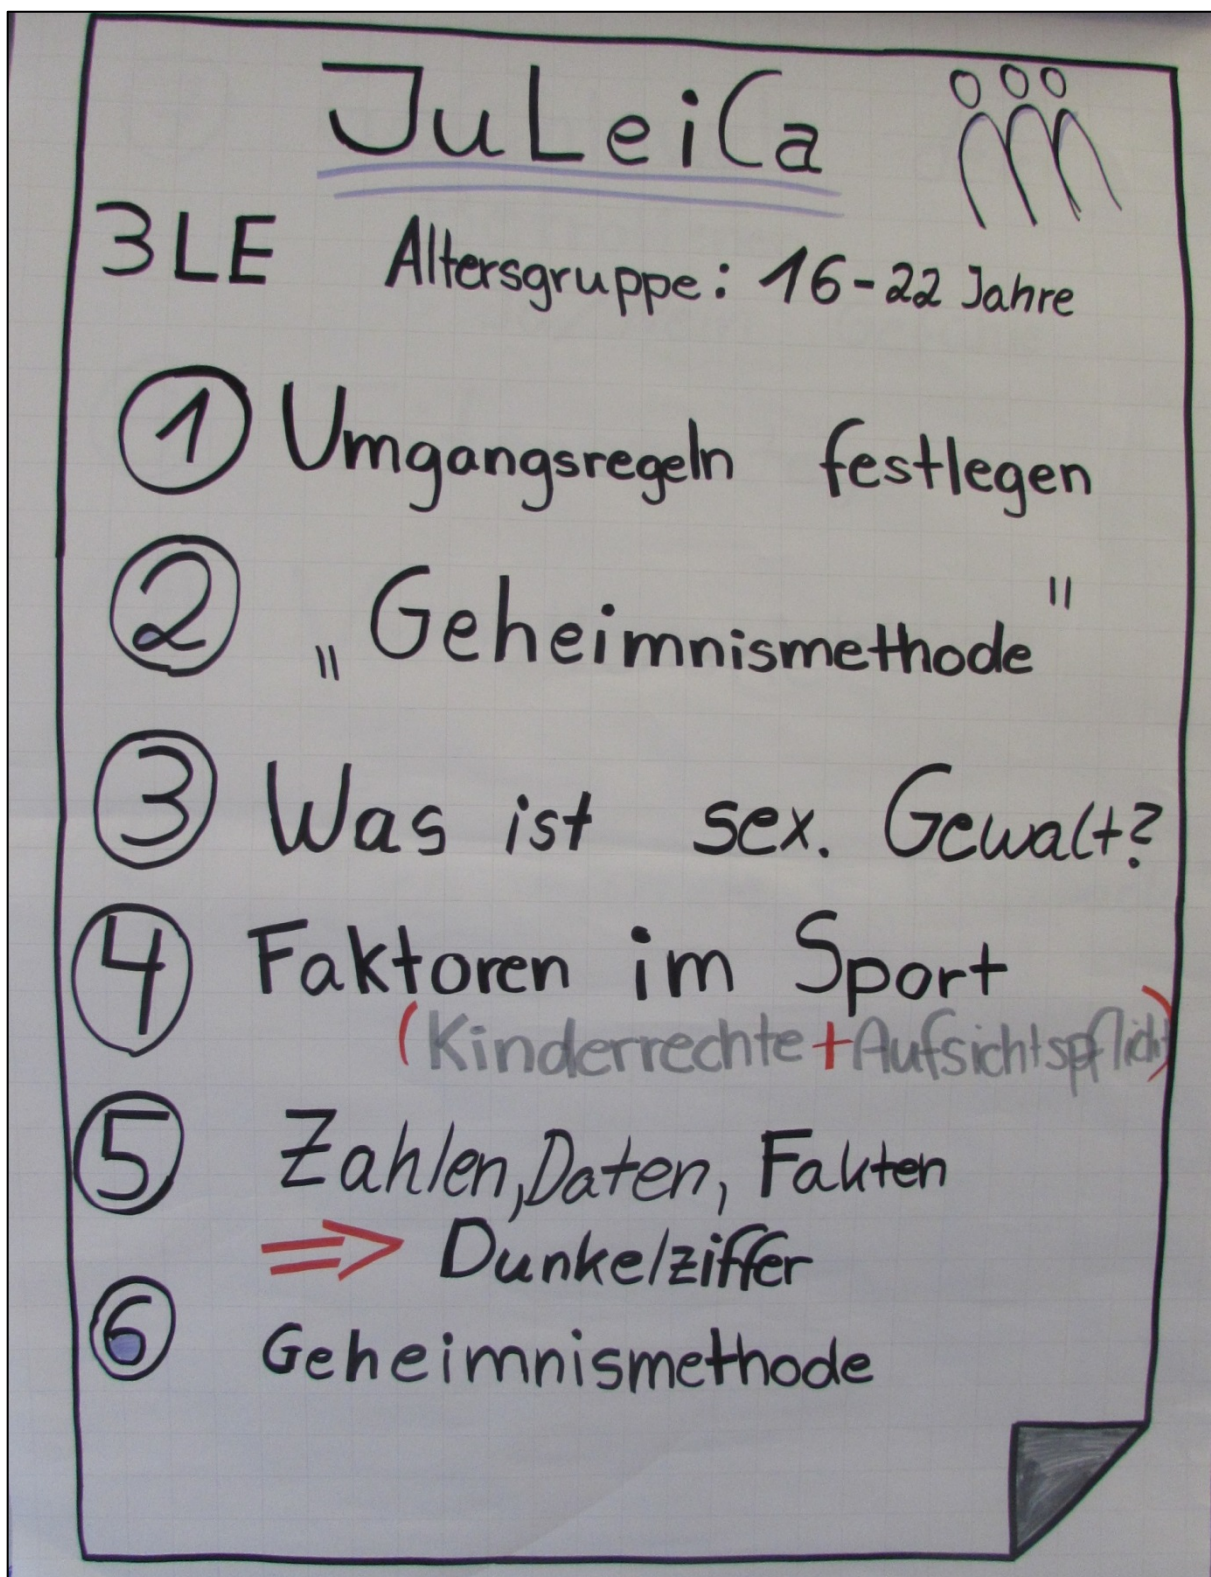 JuLeiCa
3 LE Altersgruppe: 16-22 Jahre
1 Umgangsregeln festlegen
2 „Geheimnismethode"
3 Was ist sex. Gewalt?
4 Faktoren im Sport
(Kinderrechte + Aufsichtspflicht)
5 Zahlen, Daten, Fakten
⇒ Dunkelziffer
6 Geheimnismethode